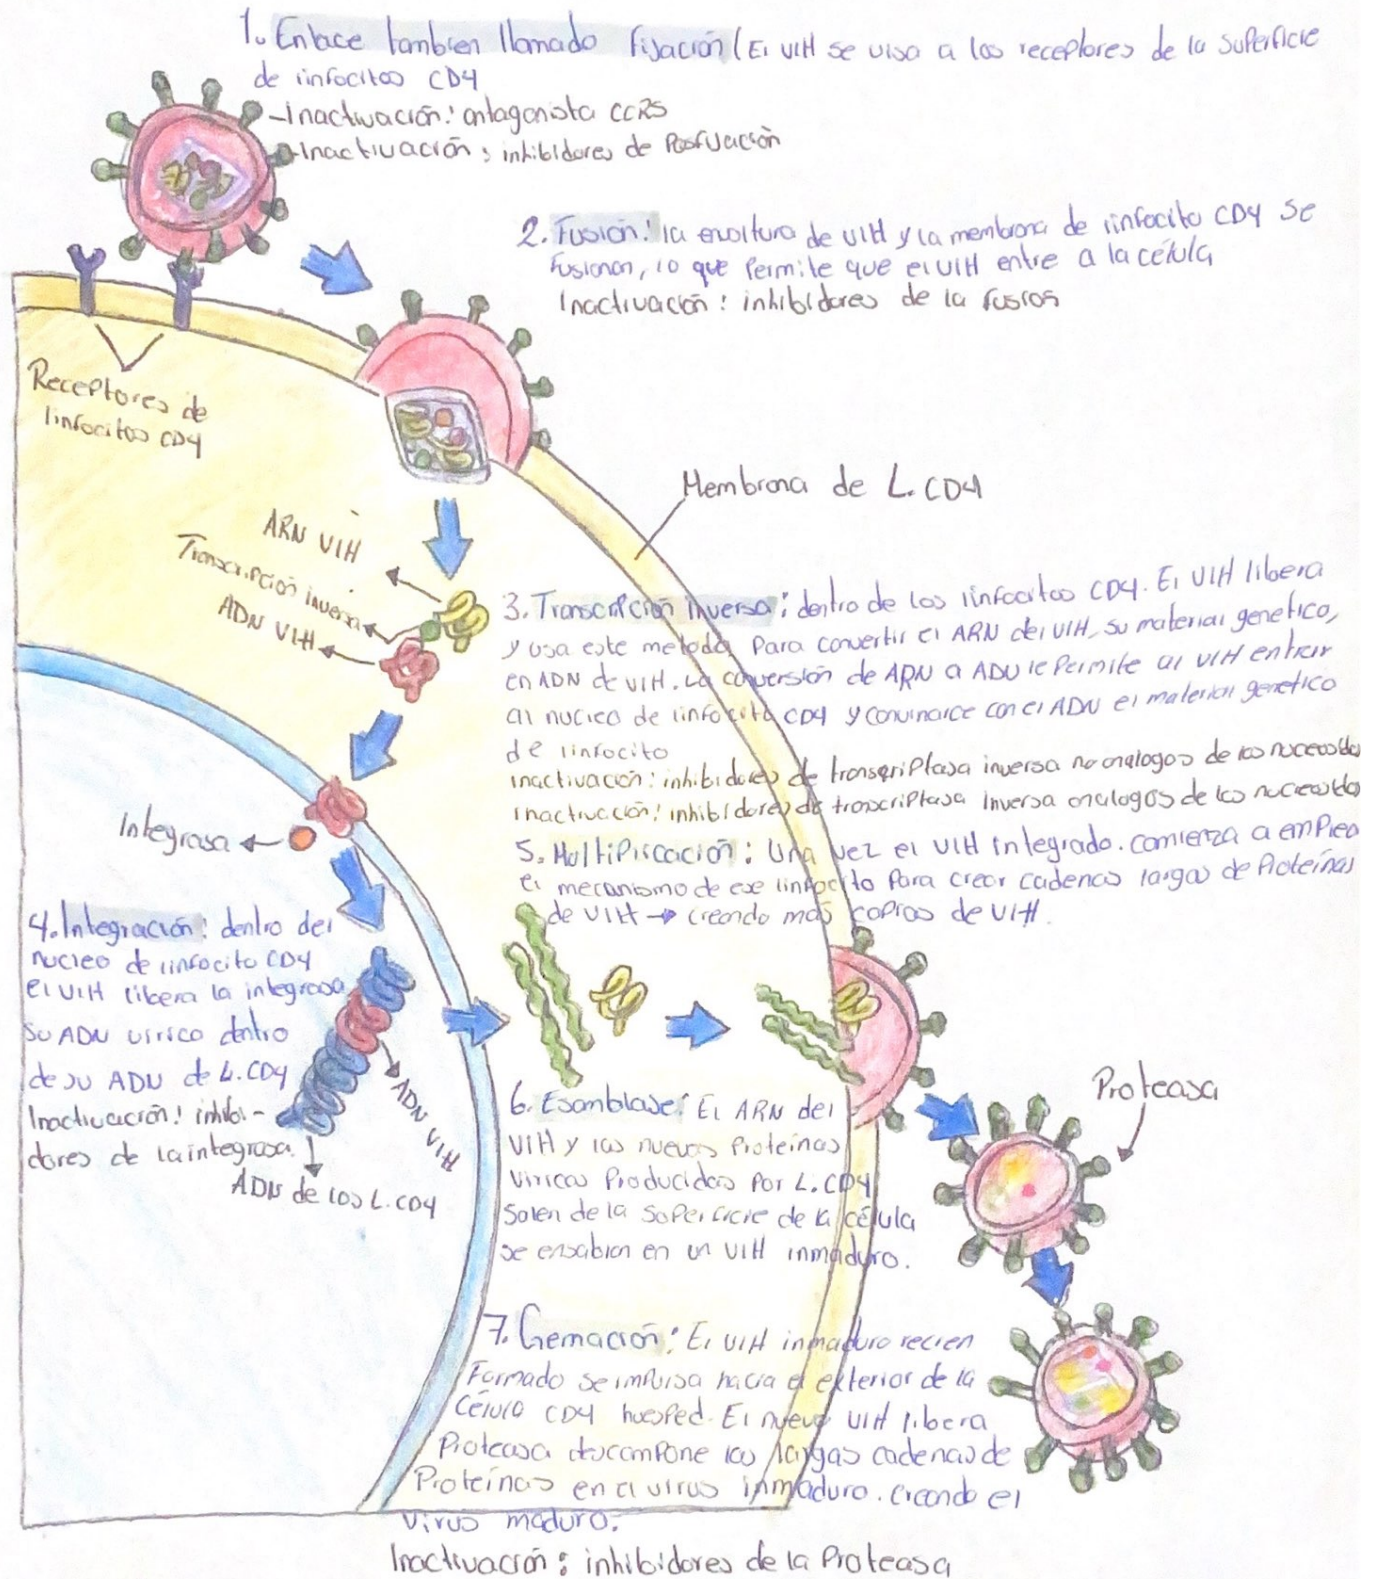 1. Enlace tambien llamado fijación (El VIH se uisa a los receptores de la superficie
de linfocitos CD4
-Inactivación: antagonista CCR5
-Inactivación: inhibidores de Posfijación
2. Fusión: la envoltura de VIH y la membrana de linfocito CD4 se
fusionan, lo que permite que el VIH entre a la célula
Inactivación: inhibidores de la fusion
Receptores de
linfocitos CD4
Membrana de L. CD4
ARN VIH
Transcripcion inversa
ADN VIH
3. Transcripción inversa: dentro de los linfocitos CD4. El VIH libera
y usa este metodo para convertir el ARN del VIH, su material genetico,
en ADN de VIH. La conversión de ARN a ADN le permite al VIH entrar
al nucleo de linfocito CD4 y convinarce con el ADN el material genetico
de linfocito
inactivación: inhibidores de transcriptasa inversa no analogos de los nucleosidos
inactivación: inhibidores de transcriptasa inversa analogos de los nucleosidos
Integrasa
5. Multiplicación: Una vez el VIH integrado. comienza a emplea
el mecanismo de ese linfocito para crear cadenas largas de Proteínas
de VIH → creando más copias de VIH.
4. Integración: dentro del
nucleo de linfocito CD4
el VIH libera la integrasa
su ADN virico dentro
de su ADN de L. CD4
Inactivación: inhibi-
dores de la integrasa.
ADN VIH
ADN de los L. CD4
6. Esamblase: El ARN del
VIH y las nuevas Proteínas
Viricas Producidas por L. CD4
Salen de la superficie de la célula
se ensablan en un VIH inmaduro.
Proteasa
7. Gemación: El VIH inmaduro recien
Formado se impulsa hacia el exterior de la
Célula CD4 huesped. El nuevo VIH libera
Proteasa descompone las largas cadenas de
Proteínas en el virus inmaduro. creando el
virus maduro.
Inactivación: inhibidores de la Proteasa